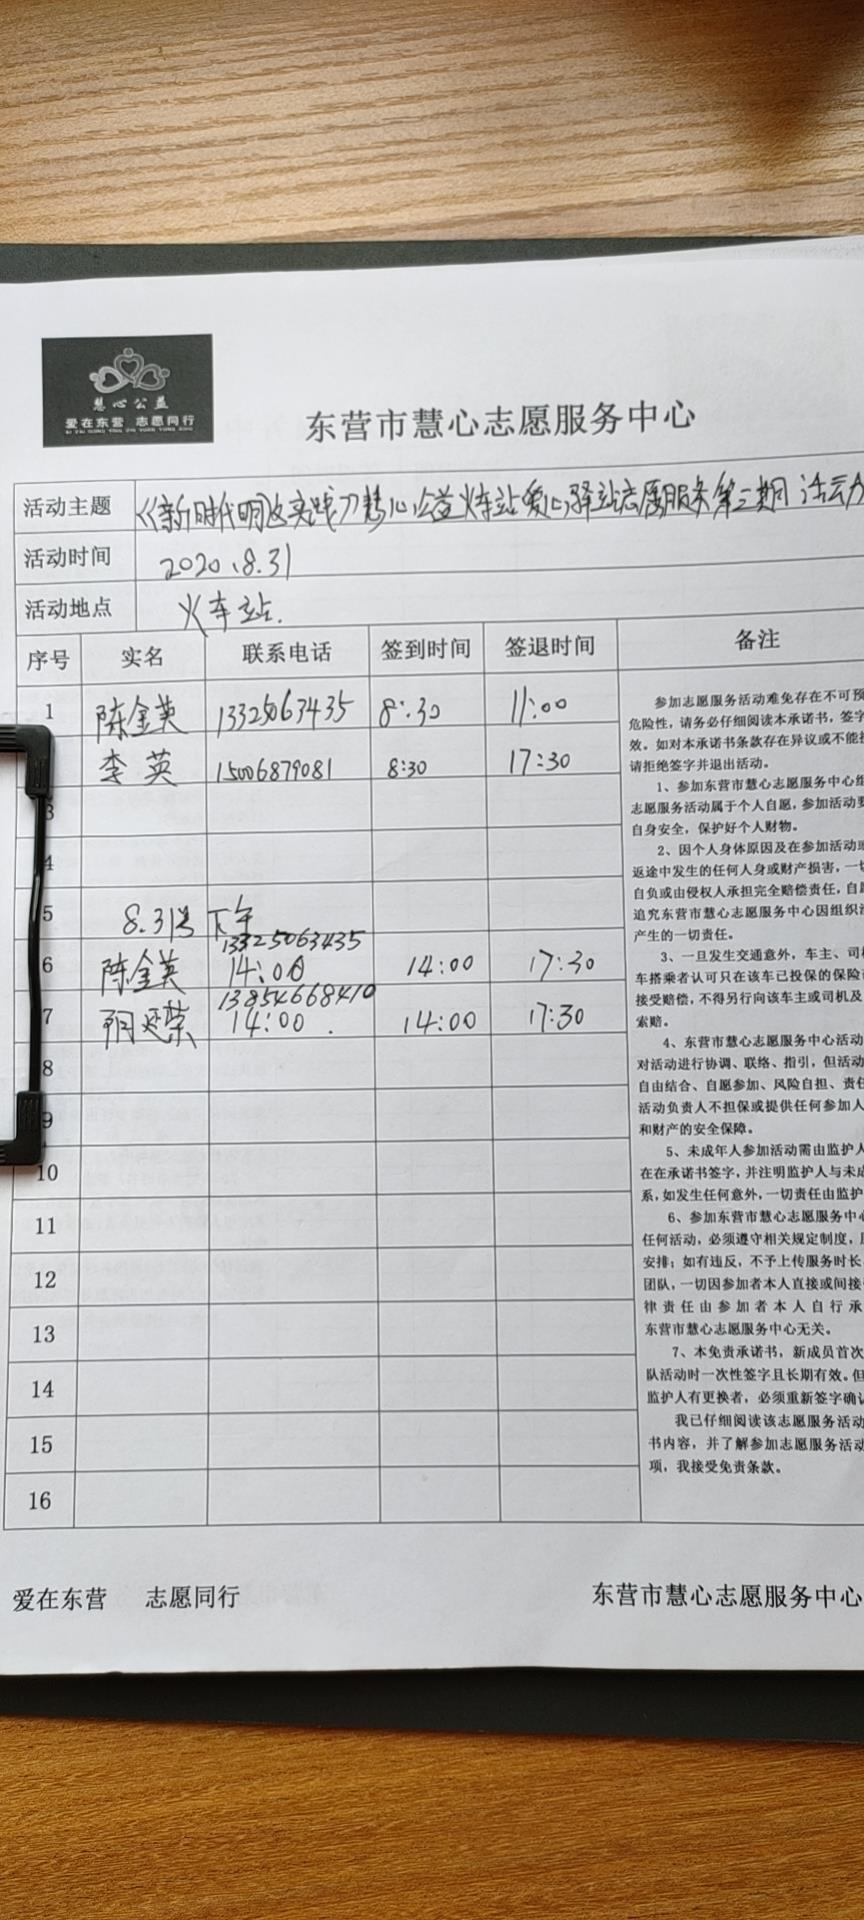 慧心公益
爱在东营 志愿同行
东营市慧心志愿服务中心
活动主题 《新时代明文实践》慧心公益火车站爱心驿站志愿服务第三期活动
活动时间 2020.8.31
活动地点 火车站.
序号 实名 联系电话 签到时间 签退时间 备注
1 陈金英 13325063435 8:30 11:00
李英 15006879081 8:30 17:30
3
4
5 8.31号 下午
13325063435
6 陈金英 14:00 14:00 17:30
13854668410
7 14:00 . 14:00 17:30
8
9
10
11
12
13
14
15
16
参加志愿服务活动难免存在不可预
危险性，请务必仔细阅读本承诺书，签字
效。如对本承诺书条款存在异议或不能接
请拒绝签字并退出活动。
1、参加东营市慧心志愿服务中心组
志愿服务活动属于个人自愿，参加活动要
自身安全，保护好个人财物。
2、因个人身体原因及在参加活动或
返途中发生的任何人身或财产损害，一切
自负或由侵权人承担完全赔偿责任，自愿
追究东营市慧心志愿服务中心因组织活
产生的一切责任。
3、一旦发生交通意外，车主、司机
车搭乘者认可只在该车已投保的保险
接受赔偿，不得另行向该车主或司机及
索赔。
4、东营市慧心志愿服务中心活动
对活动进行协调、联络、指引，但活动
自由结合、自愿参加、风险自担、责任
活动负责人不担保或提供任何参加人
和财产的安全保障。
5、未成年人参加活动需由监护人
在在承诺书签字，并注明监护人与未成
系，如发生任何意外，一切责任由监护
6、参加东营市慧心志愿服务中心
任何活动，必须遵守相关规定制度，服
安排；如有违反，不予上传服务时长，
团队，一切因参加者本人直接或间接
律责任由参加者本人自行承
东营市慧心志愿服务中心无关。
7、本免责承诺书，新成员首次
队活动时一次性签字且长期有效。但
监护人有更换者，必须重新签字确认
我已仔细阅读该志愿服务活动
书内容，并了解参加志愿服务活动
项，我接受免责条款。
爱在东营 志愿同行 东营市慧心志愿服务中心